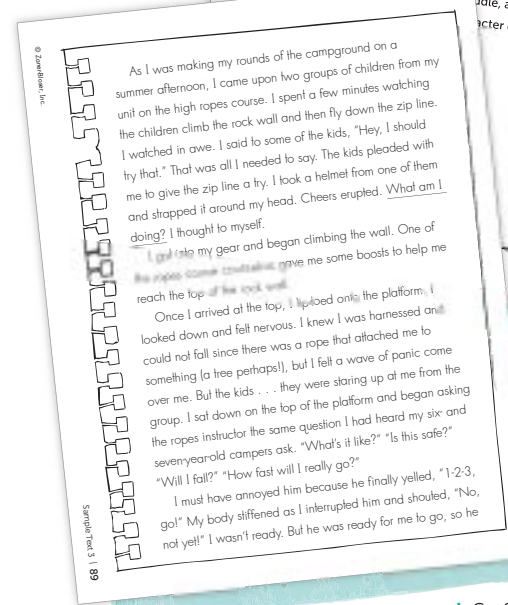 © Zaner-Bloser, Inc.
As I was making my rounds of the campground on a
summer afternoon, I came upon two groups of children from my
unit on the high ropes course. I spent a few minutes watching
the children climb the rock wall and then fly down the zip line.
I watched in awe. I said to some of the kids, "Hey, I should
try that." That was all I needed to say. The kids pleaded with
me to give the zip line a try. I took a helmet from one of them
and strapped it around my head. Cheers erupted. What am I
doing? I thought to myself.
I got into my gear and began climbing the wall. One of
the ropes course gave me some boosts to help me
reach the top of the rock wall.
Once I arrived at the top, I tiptoed onto the platform. I
looked down and felt nervous. I knew I was harnessed and
could not fall since there was a rope that attached me to
something (a tree perhaps!), but I felt a wave of panic come
over me. But the kids . . . they were staring up at me from the
group. I sat down on the top of the platform and began asking
the ropes instructor the same question I had heard my six- and
seven-year-old campers ask. "What's it like?" "Is this safe?"
"Will I fall?" "How fast will I really go?"
I must have annoyed him because he finally yelled, "1-2-3,
go!" My body stiffened as I interrupted him and shouted, "No,
not yet!" I wasn't ready. But he was ready for me to go, so he
Sample Text 3 | 89